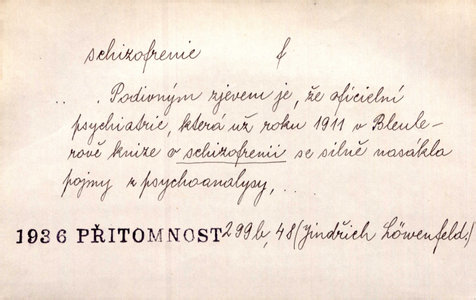 schizofrenie f
. . . Podivným zjevem je, že oficielní
psychiatrie, která už roku 1911 v Bleule-
rově knize o schizofrenii se silně nasákla
pojmy z psychoanalysy, . . .
1936 PŘITOMNOST 299b, 48 (Jindřich Löwenfeld.)